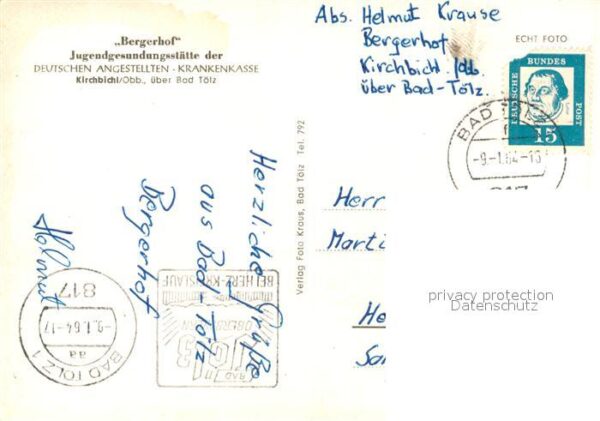 „Bergerhof"
Jugendgesundungsstätte der
DEUTSCHEN ANGESTELLTEN - KRANKENKASSE
Kirchbichl/Obb., über Bad Tölz
Abs. Helmut Krause
Bergerhof
Kirchbichl /Obb.
über Bad-Tölz.
ECHT FOTO
DEUTSCHE BUNDES POST
15
BAD TÖLZ
-9.-1.64-18
817
Herzliche Grüße
aus Bad Tölz
Bergerhof
Helmut
Verlag Foto Kraus, Bad Tölz Tel. 792
Herr
Marti
privacy protection
Datenschutz
BAD TÖLZ 1
aa
-9.1.64-17
817
BAD
TÖLZ
BEI HERZ-KREISLAUF